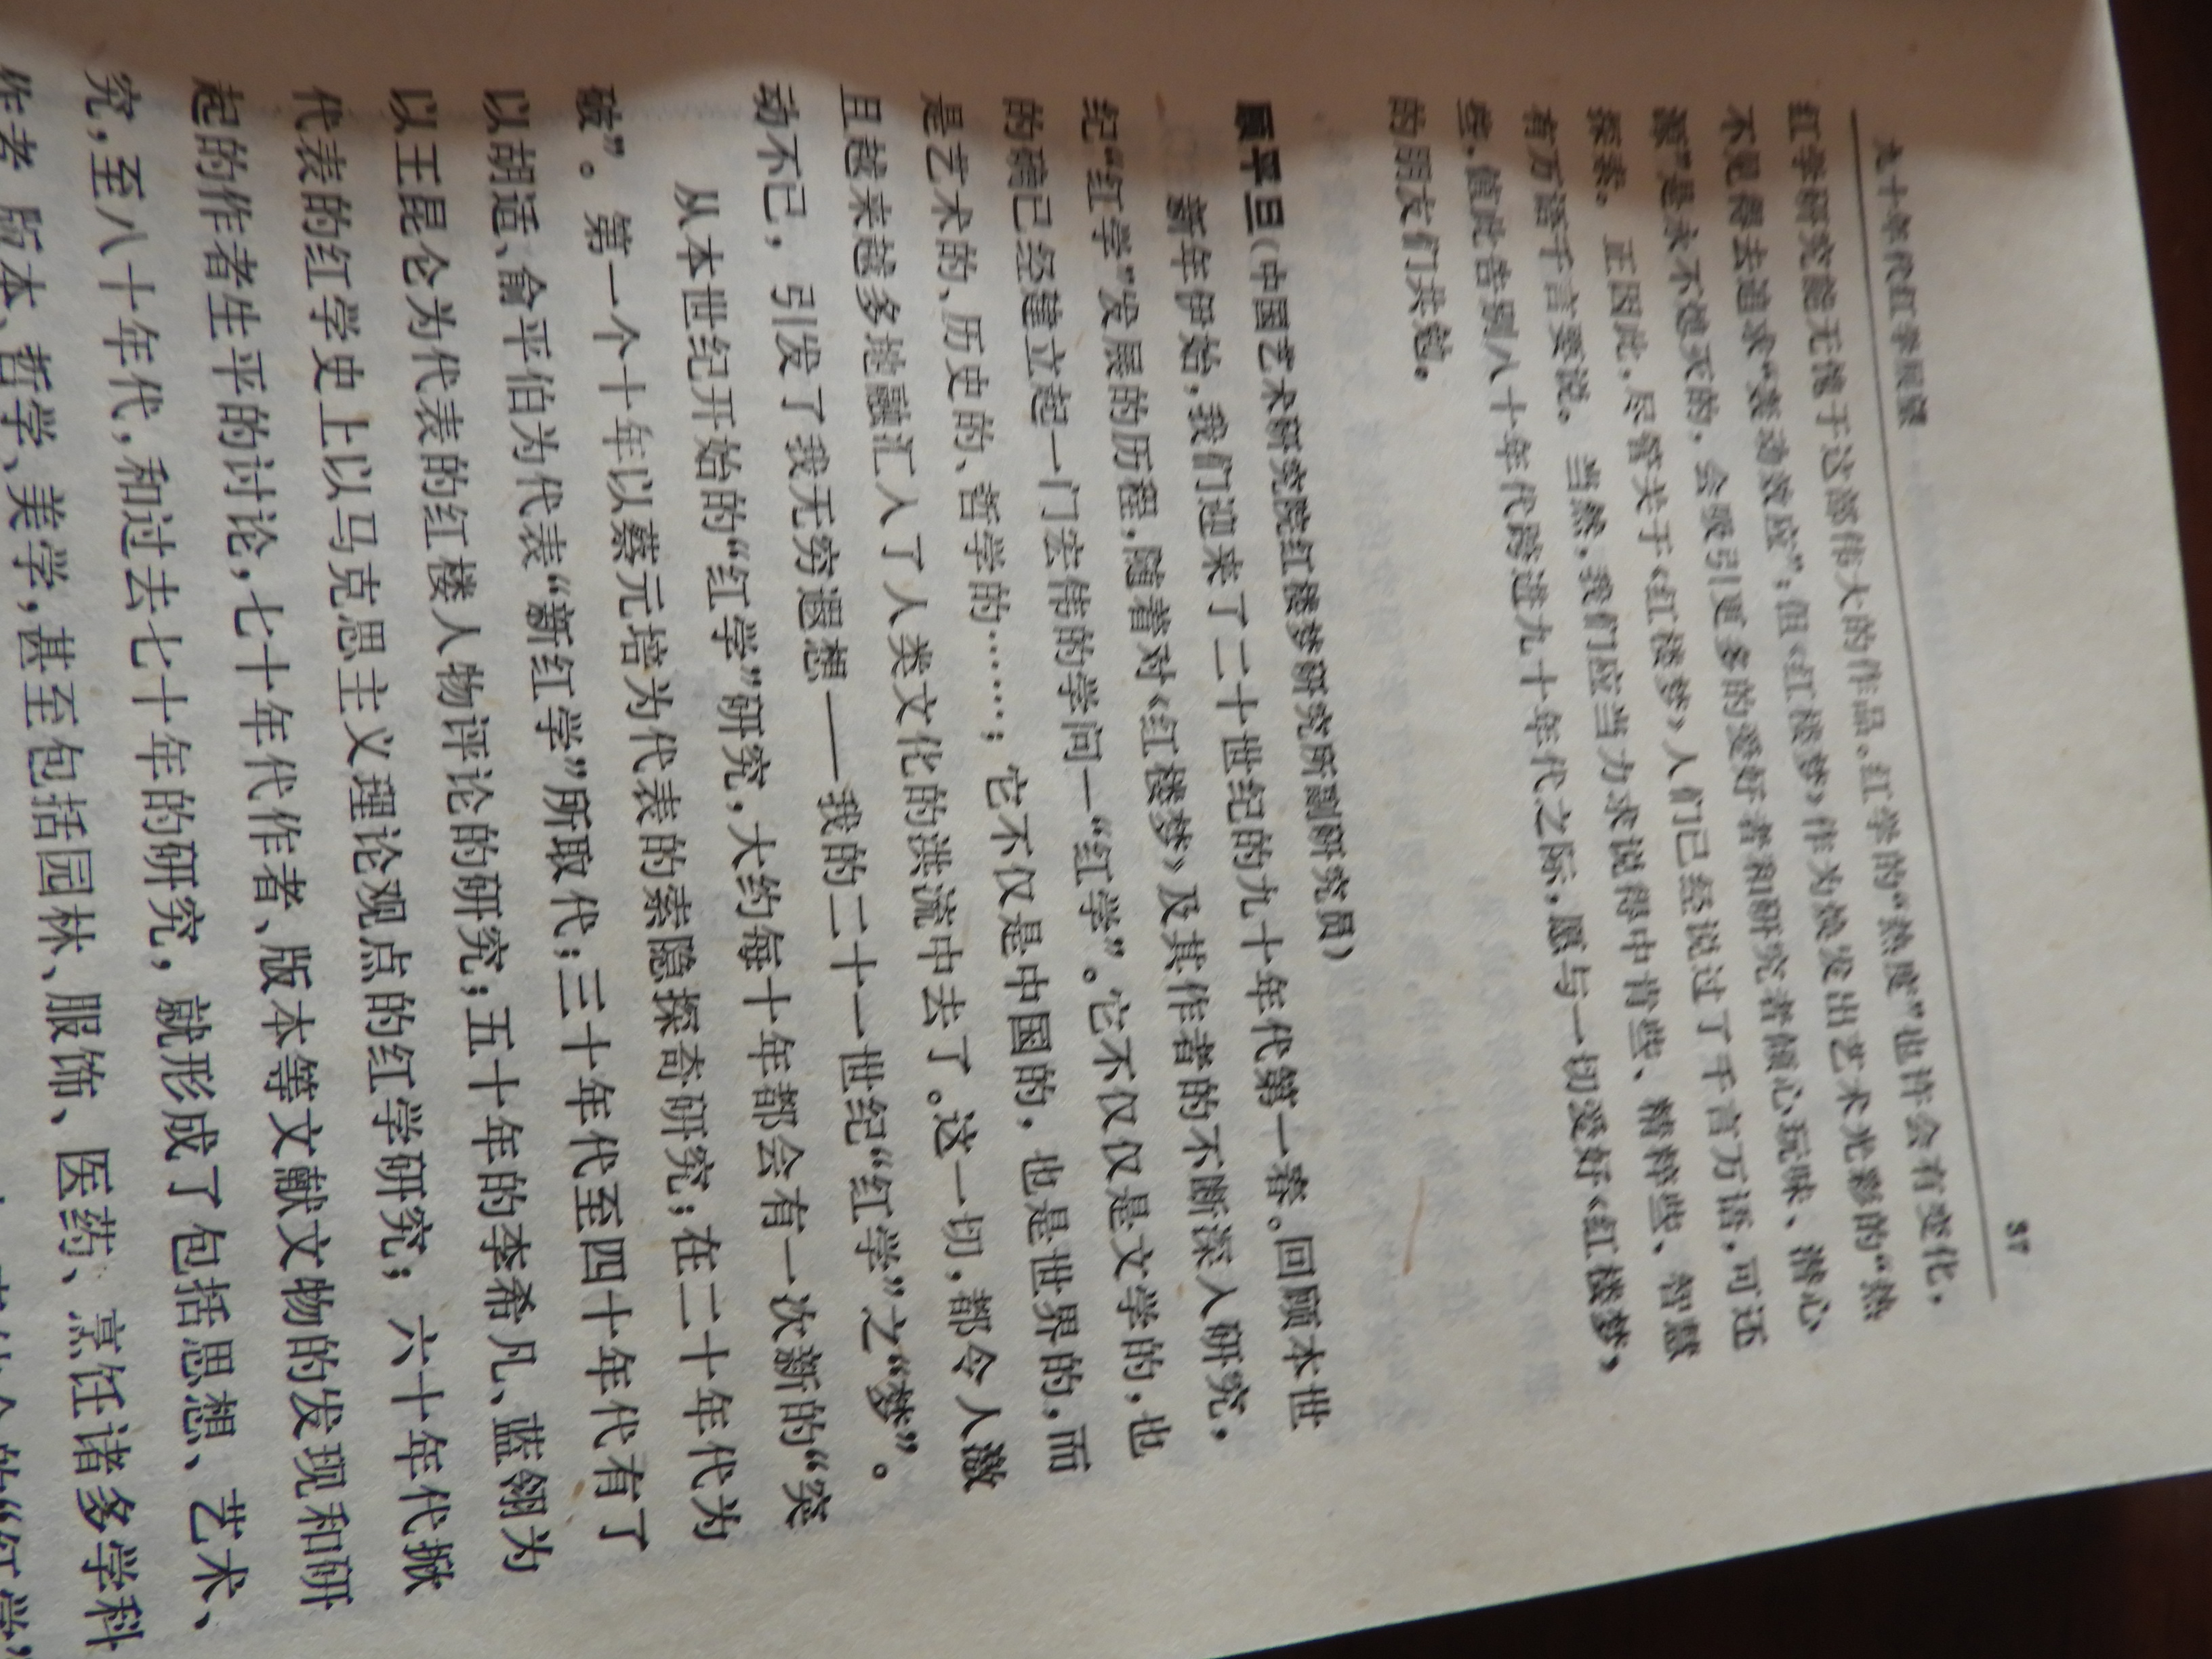 37
九十年代红学展望
红学研究能无愧于这部伟大的作品。红学的“热度”也许会有变化，
不见得去追求“轰动效应”；但《红楼梦》作为焕发出艺术光彩的“热
源”是永不熄灭的，会吸引更多的爱好者和研究者倾心玩味、潜心
探索。正因此，尽管关于《红楼梦》人们已经说过了千言万语，可还
有万语千言要说。当然，我们应当力求说得中肯些、精粹些、智慧
些，值此告别八十年代跨进九十年代之际，愿与一切爱好《红楼梦》
的朋友们共勉。
顾平旦（中国艺术研究院红楼梦研究所副研究员）
新年伊始，我们迎来了二十世纪的九十年代第一春。回顾本世
纪“红学”发展的历程，随着对《红楼梦》及其作者的不断深入研究，
的确已经建立起一门宏伟的学问—“红学”。它不仅仅是文学的，也
是艺术的、历史的、哲学的……；它不仅是中国的，也是世界的，而
且越来越多地融汇入了人类文化的洪流中去了。这一切，都令人激
动不已，引发了我无穷遐想——我的二十一世纪“红学”之“梦”。
从本世纪开始的“红学”研究，大约每十年都会有一次新的“突
破”。第一个十年以蔡元培为代表的索隐探奇研究；在二十年代为
以胡适、俞平伯为代表“新红学”所取代；三十年代至四十年代有了
以王昆仑为代表的红楼人物评论的研究；五十年的李希凡、蓝翎为
代表的红学史上以马克思主义理论观点的红学研究；六十年代掀
起的作者生平的讨论，七十年代作者、版本等文献文物的发现和研
究，至八十年代，和过去七十年的研究，就形成了包括思想、艺术、
作者、版本、哲学、美学，甚至包括园林、服饰、医药、烹饪诸多学科
的“红学”